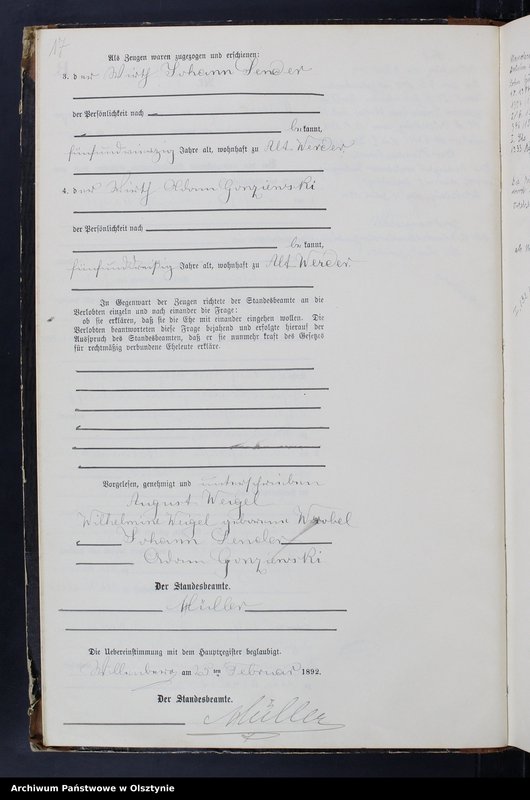 17
Als Zeugen waren zugezogen und erschienen:
3. der Wirth Johann Sender
der Persönlichkeit nach
be kannt,
fünfundvierzig Jahre alt, wohnhaft zu Alt Werder
4. der Wirth Adam Gonziewski
der Persönlichkeit nach
be kannt,
fünfunddreißig Jahre alt, wohnhaft zu Alt Werder
In Gegenwart der Zeugen richtete der Standesbeamte an die
Verlobten einzeln und nach einander die Frage:
ob sie erklären, daß sie die Ehe mit einander eingehen wollen. Die
Verlobten beantworteten diese Frage bejahend und erfolgte hierauf der
Ausspruch des Standesbeamten, daß er sie nunmehr kraft des Gesetzes
für rechtmäßig verbundene Eheleute erkläre.
Vorgelesen, genehmigt und unterschrieben
August Weigel
Wilhelmine Weigel geborene Wrobel
Johann Sender
Adam Gonziewski
Der Standesbeamte.
Müller
Die Uebereinstimmung mit dem Hauptregister beglaubigt.
Willenberg am 25 ten Februar 1892.
Der Standesbeamte.
Müller
Archiwum Państwowe w Olsztynie